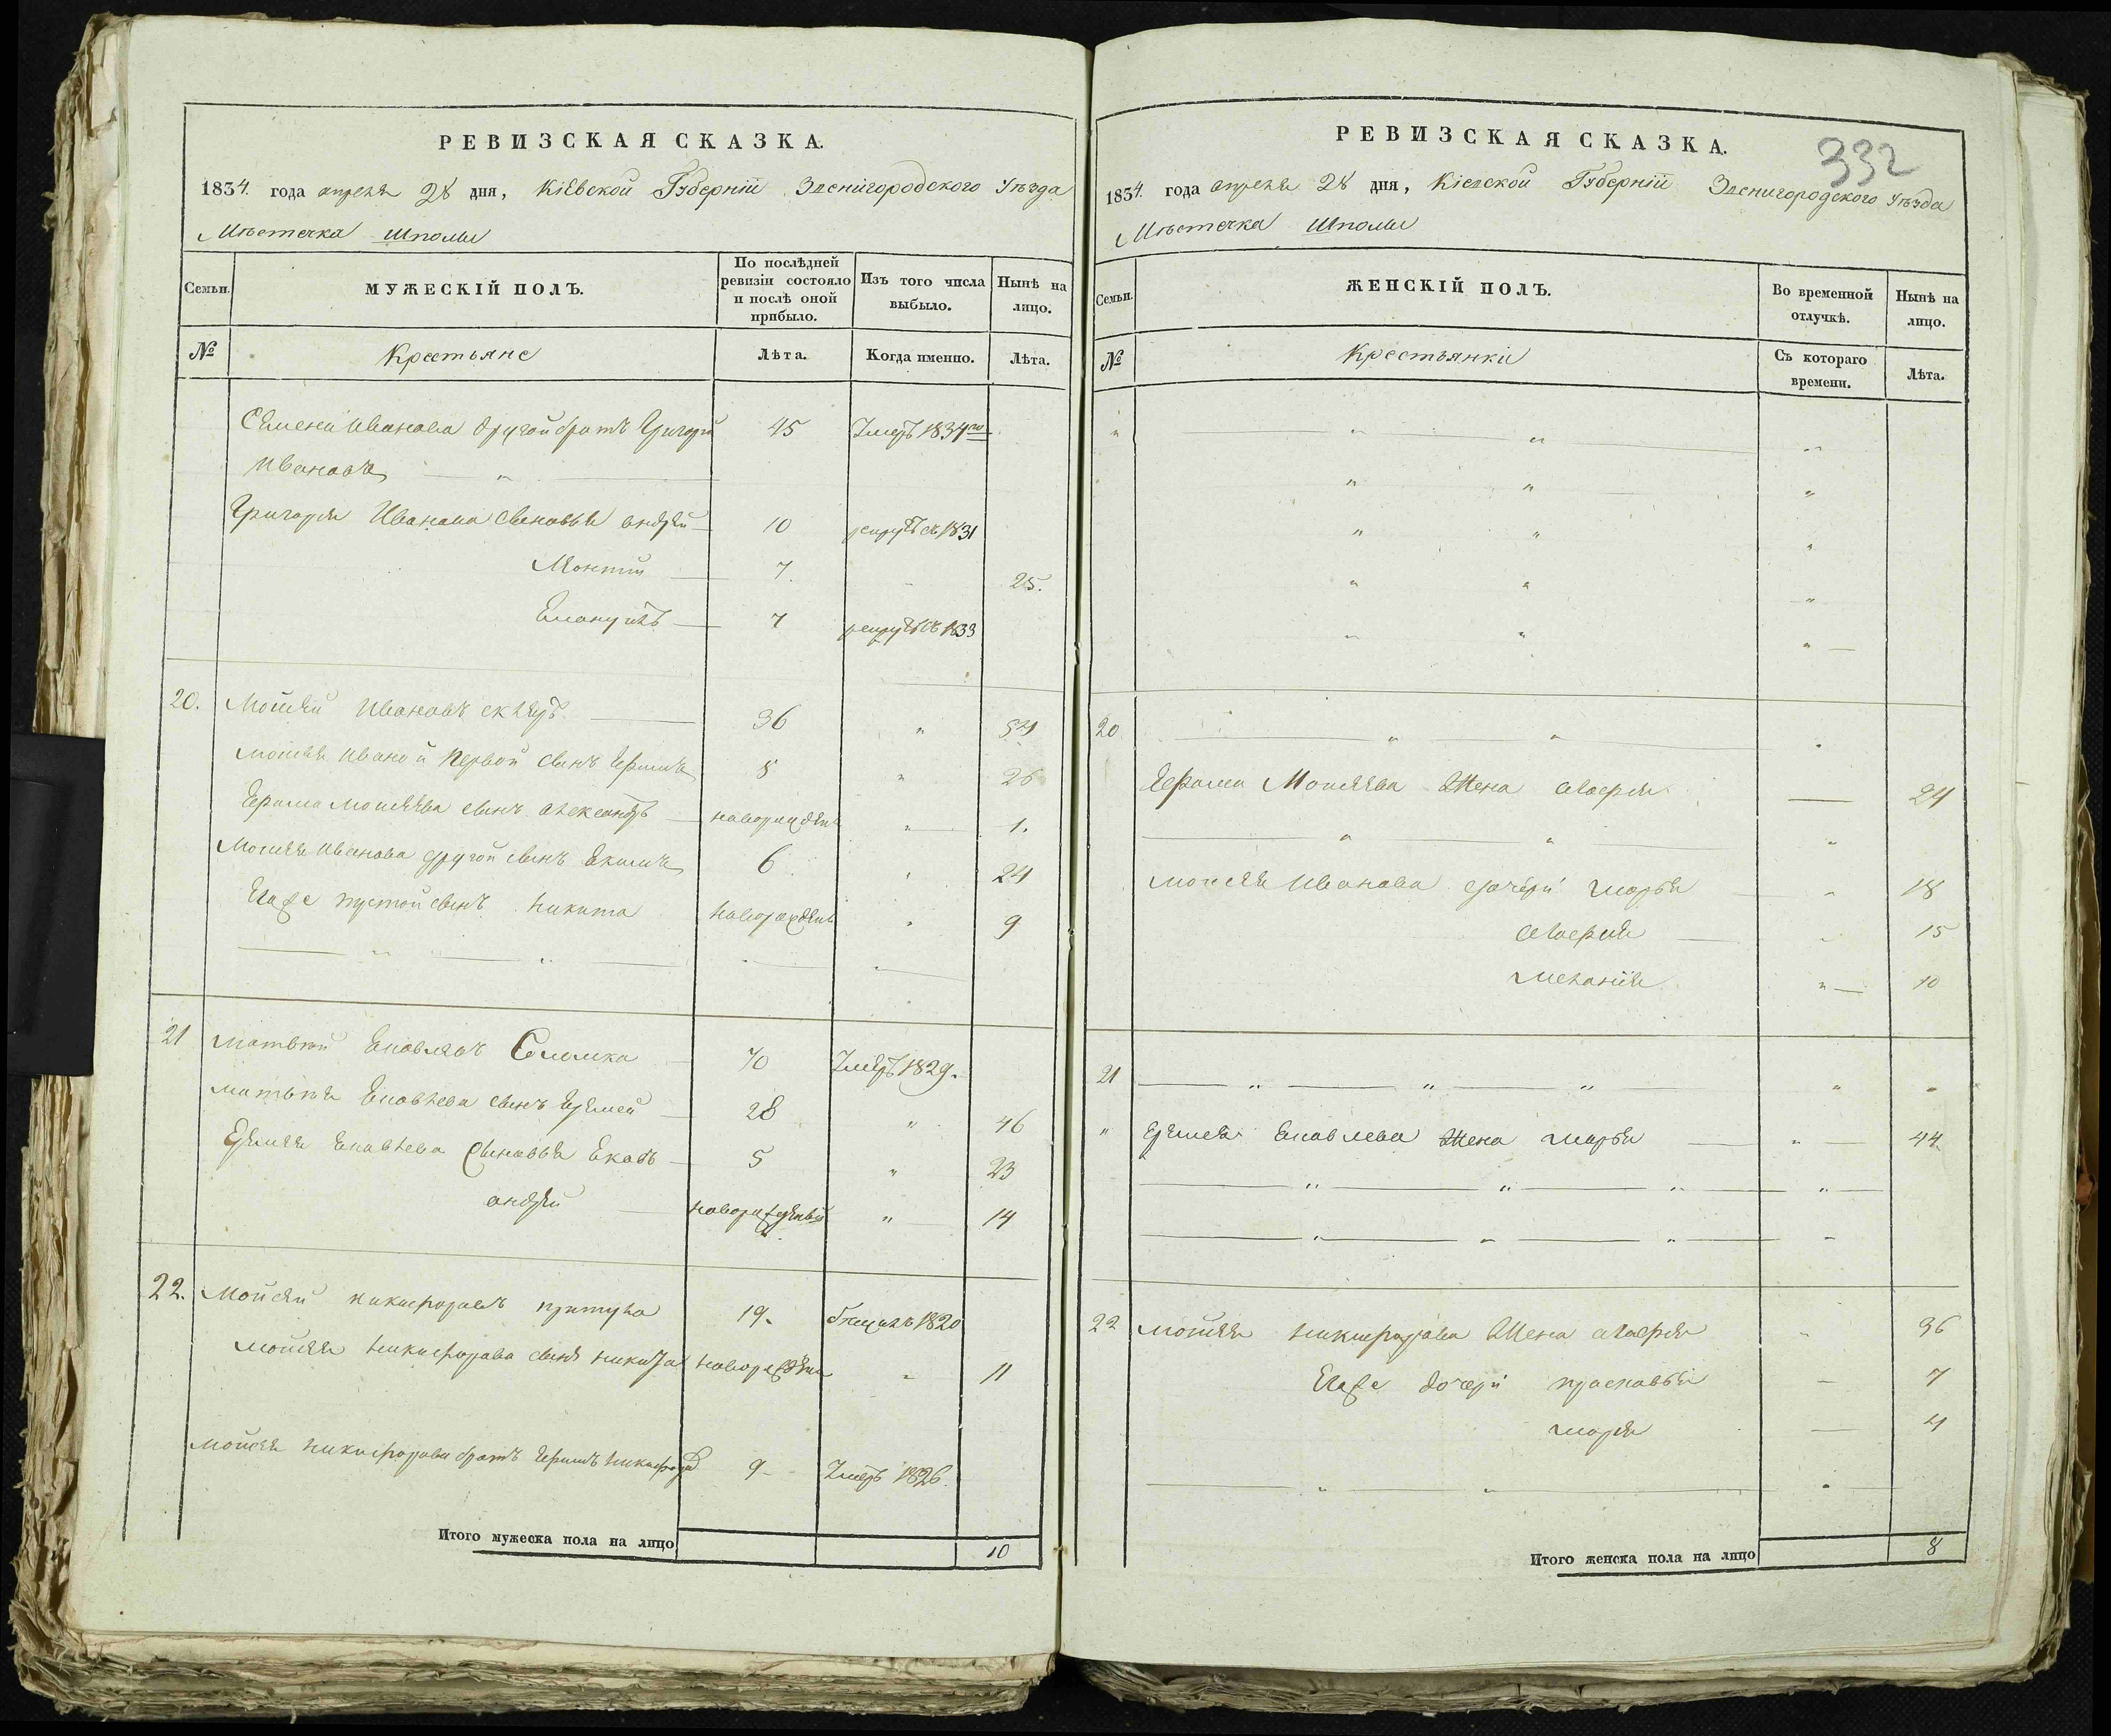 РЕВИЗСКАЯ СКАЗКА.
1834. года апреля 28 дня, Кіевской Губерніи Звенигородского Уѣзда
Мѣстечка Шполы
Семьи.
МУЖЕСКІЙ ПОЛЪ.
По послѣдней ревизіи состояло и послѣ оной прибыло.
Изъ того числа выбыло.
Нынѣ на лицо.
№
Крестьяне
Лѣта.
Когда именно.
Лѣта.
Семена Иванова другой братъ Григорій 45 Умеръ 1834го
Ивановъ
Григорія Иванова сыновья андрей 10 рекрутъ съ 1831
7 25.
7 рекрутъ съ 1833
20. Мойсей Ивановъ 36 54
Мойсея Иванова первой сынъ Ефимъ 8 26
Ефима Мойсеева сынъ александръ новорожденъ 1.
Мойсея Иванова другой сынъ Екимъ 6 24
Егоже пустой сынъ никита новорожденъ 9
21 матвей Яковлевъ Соломка 70 Умеръ 1829.
матвея Яковлева сынъ Еремей 28 46
Еремея Яковлева Сыновья Яковъ 5 23
андрей новорожденый 14
22. Мойсей никифоровъ притула 19. 1820
мойсея никифорова сынъ никита новорожденъ 11
мойсея никифорова братъ Ефимъ никифоровъ 9 Умеръ 1826.
Итого мужеска пола на лицо 10
332
РЕВИЗСКАЯ СКАЗКА.
1834. года апреля 28 дня, Кіевской Губерніи Звенигородского Уѣзда
Мѣстечка Шполы
Семьи.
ЖЕНСКІЙ ПОЛЪ.
Во временной отлучкѣ.
Нынѣ на лицо.
№
Крестьянки
Съ котораго времени.
Лѣта.
20
Ефима Мойсеева Жена 24
мойсея Иванова дочери марья 18
15
меланія 10
21
Еремея Яковлева Жена марья 44.
22 мойсея никифорова Жена 36
Егоже дочери прасковья 7
марья 4
Итого женска пола на лицо 8